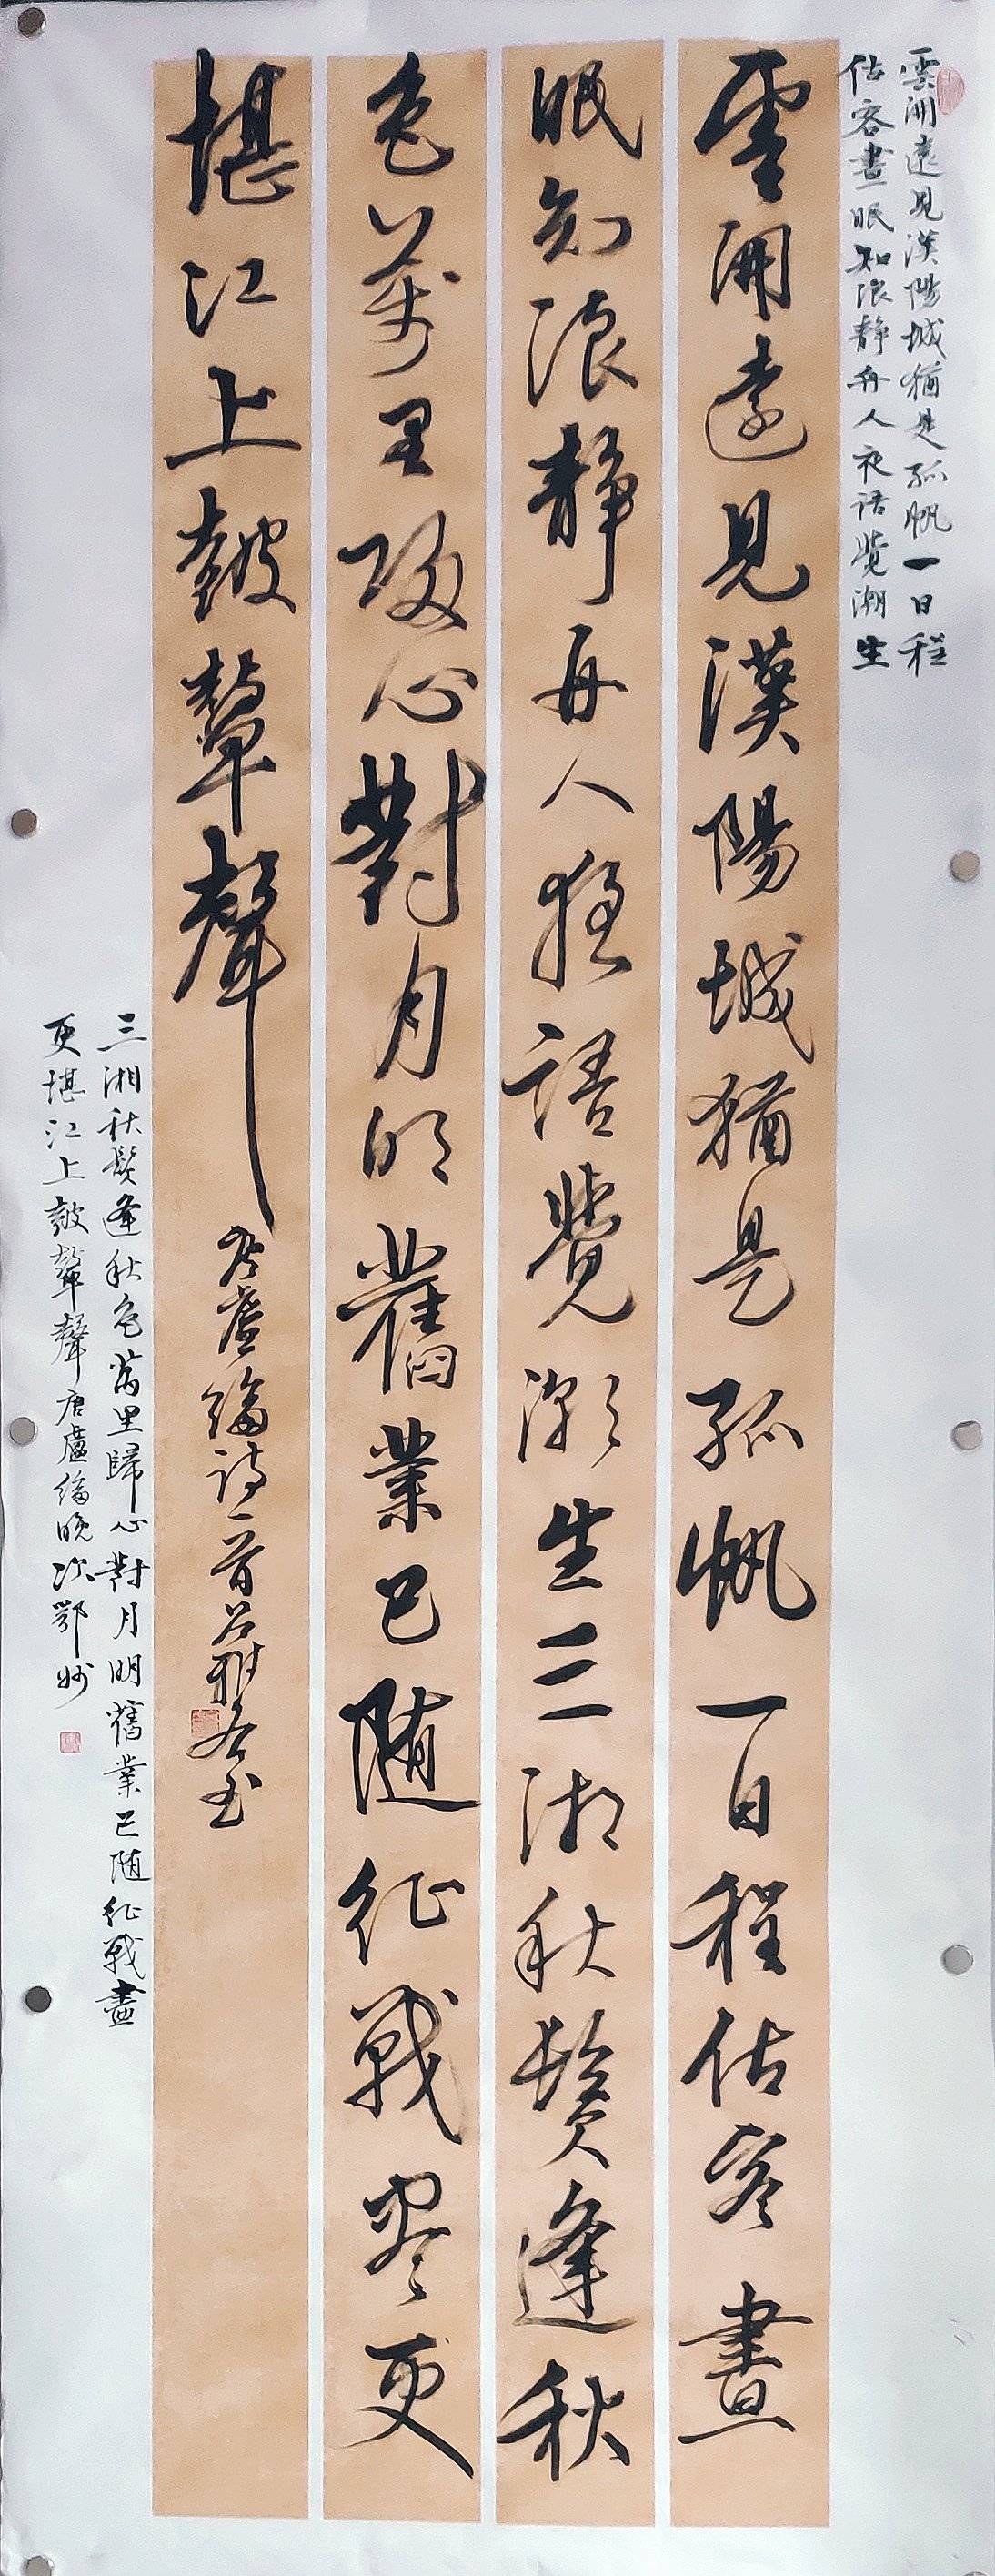 雲開遠見漢陽城猶是孤帆一日程
估客晝眠知浪静舟人夜語覺潮生
雲開遠見漢陽城猶是孤帆一日程估客晝
眠知浪静舟人夜語覺潮生三湘秋鬢逢秋
色萬里歸心對月明舊業已随征戰盡更
堪江上鼓鼙聲
唐盧綸詩一首書
三湘秋鬢逢秋色萬里歸心對月明舊業已随征戰盡
更堪江上鼓鼙聲唐盧綸晚次鄂州